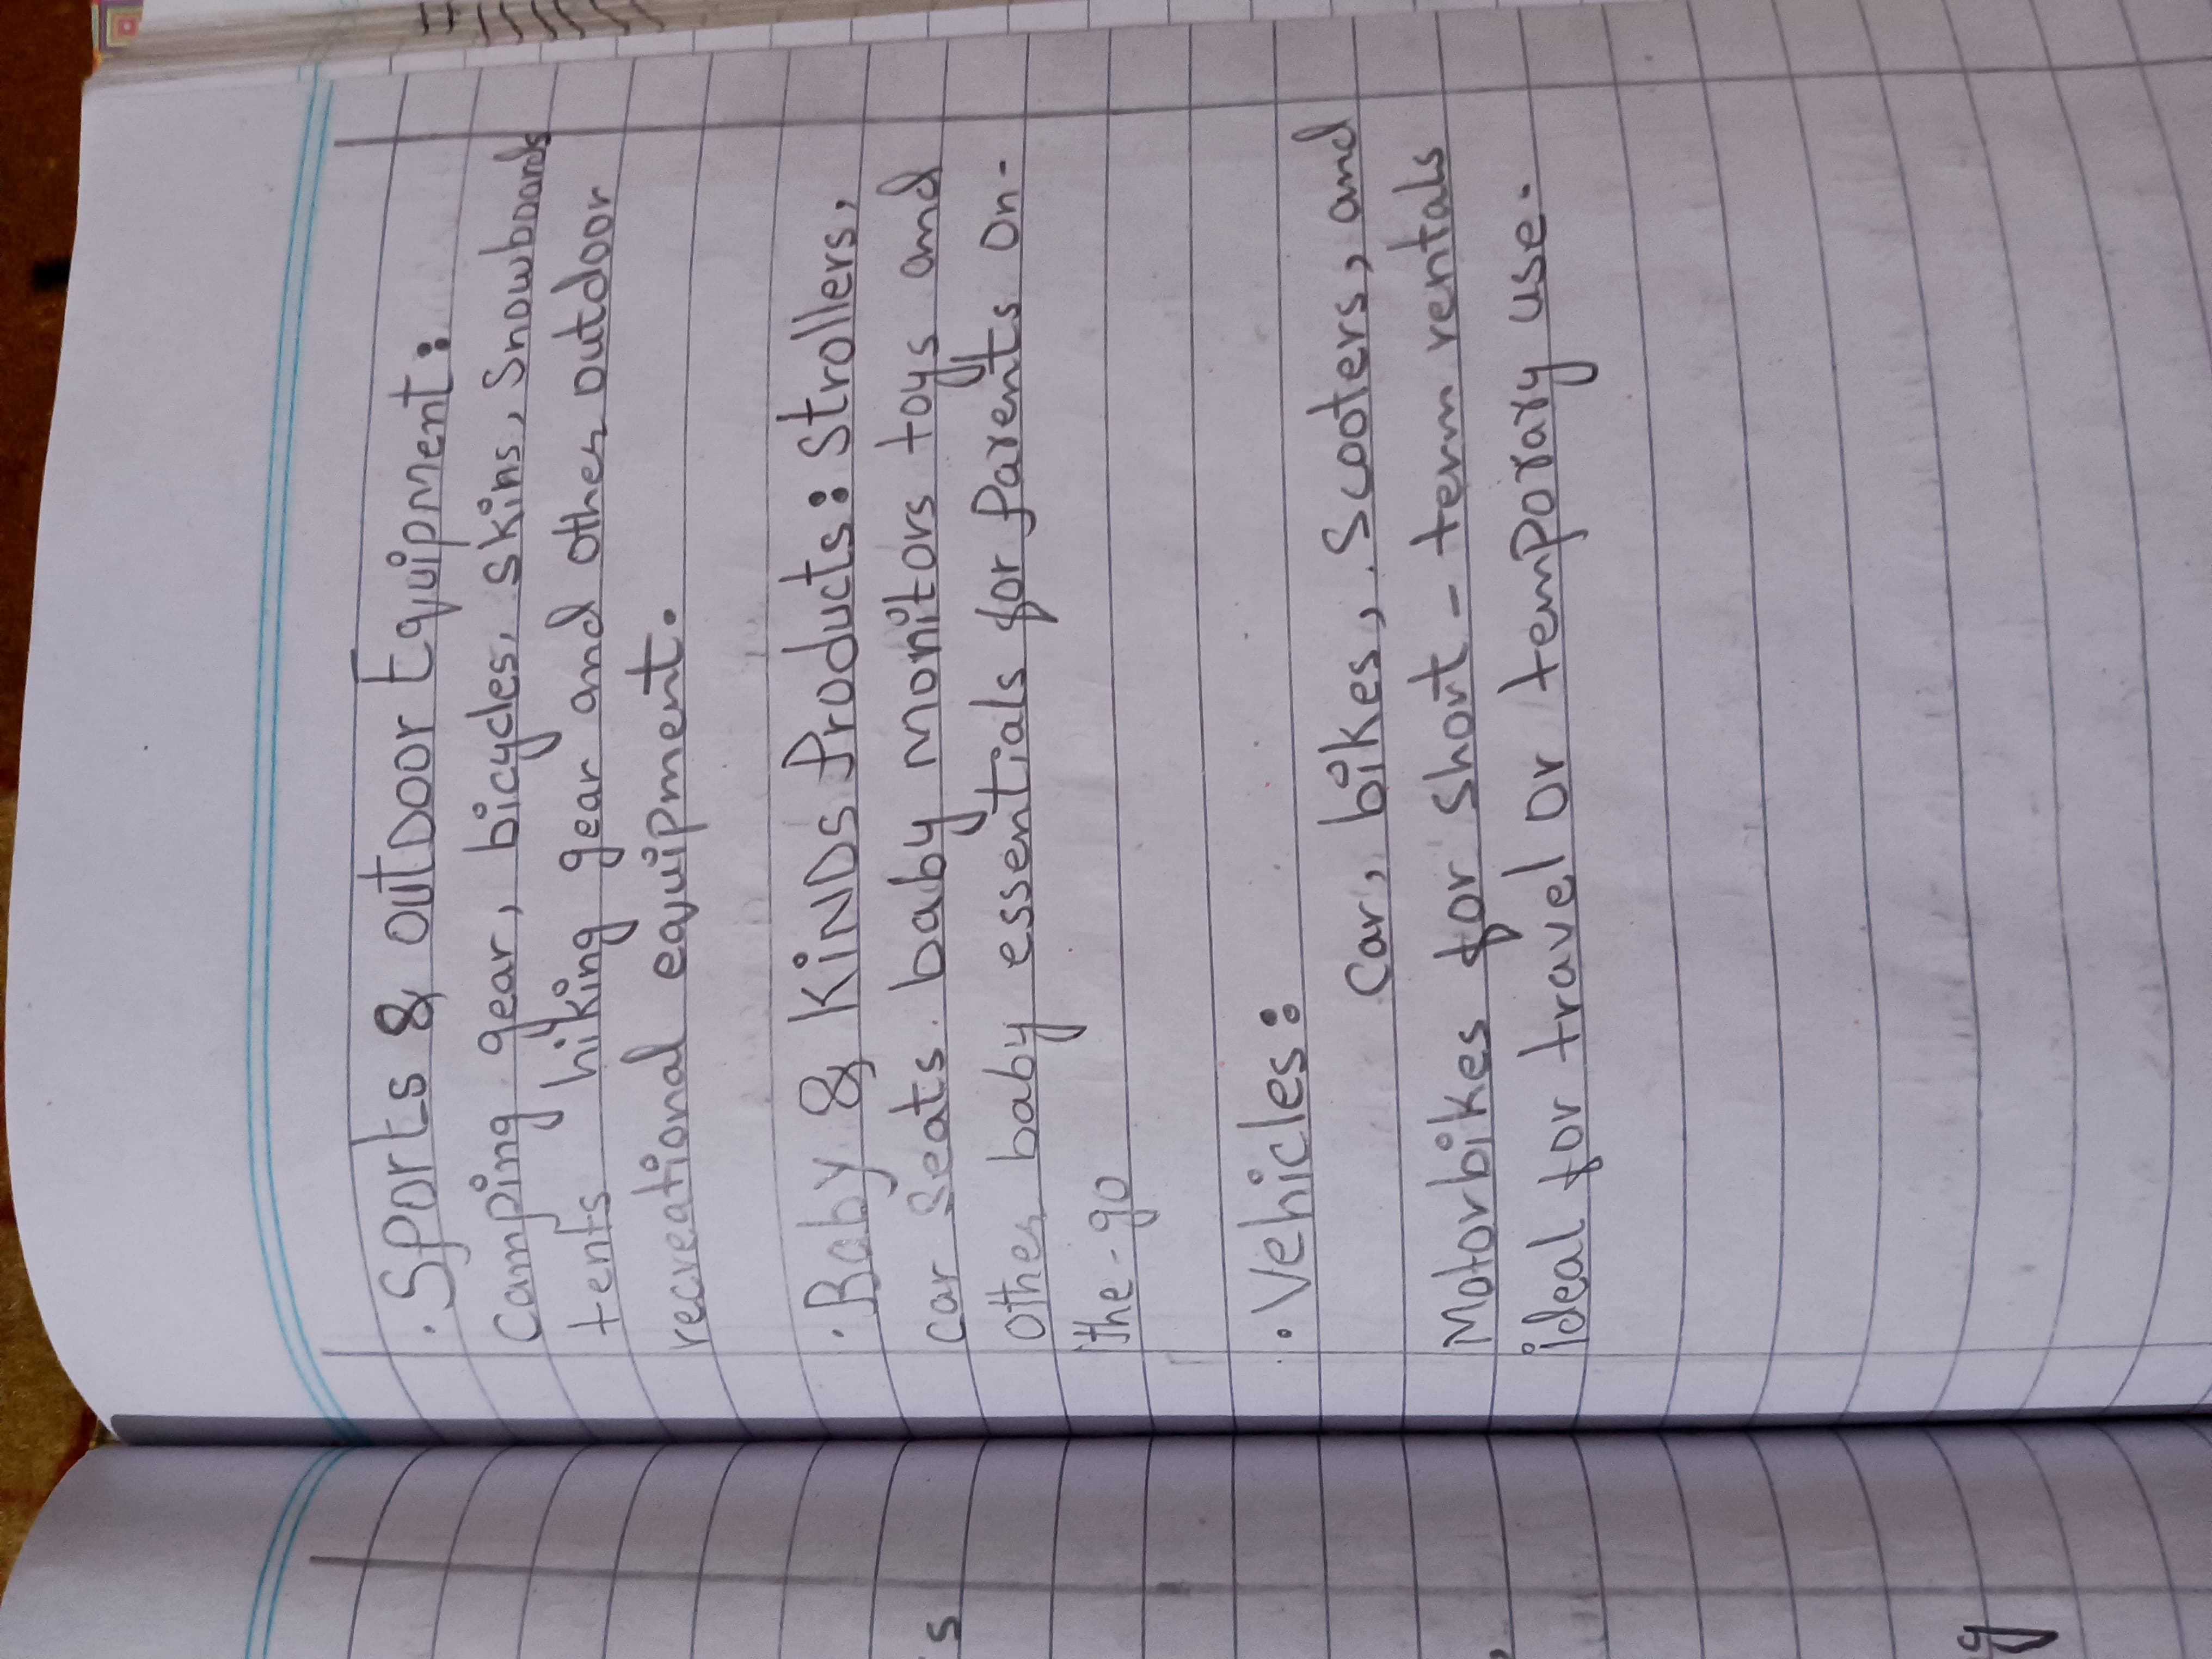 . Sports & outDoor Equipment:
Camping gear, bicycles, skins, Snowboards
tents hiking gear and other outdoor
recreational equipment.
. Baby & KiNDs Products: Strollers,
car seats. baby monitors toys and
Other baby essentials for Parents on-
the - go
. Vehicles:
Car, bikes, Scooters, and
Motorbikes for short - term rentals
ideal for travel or temporary use.
s
y